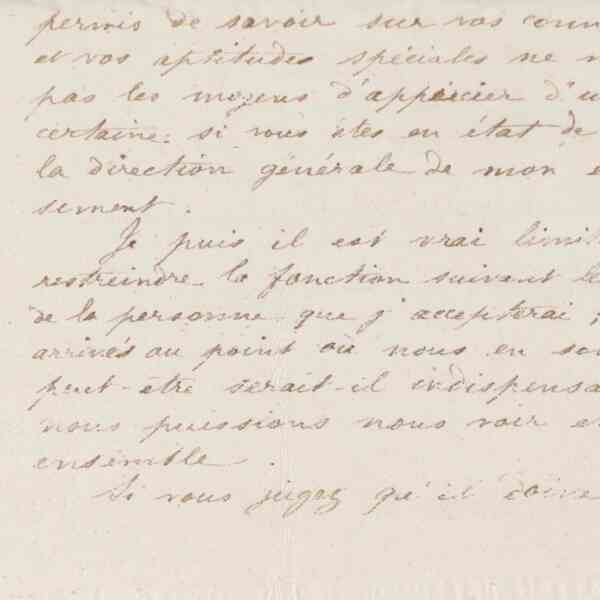 permis de savoir sur vos conn
et vos aptitudes spéciales ne m
pas les moyens d'apprécier d'u
certaine si vous êtes en état de
la direction générale de mon e
sement.
Je puis il est vrai limit
restreindre la fonction suivant le
de la personne que j'accepterai;
arrivés au point où nous en som
peut-être serait-il indispensa
nous puissions nous voir e
ensemble.
Si vous jugez qu'il doive